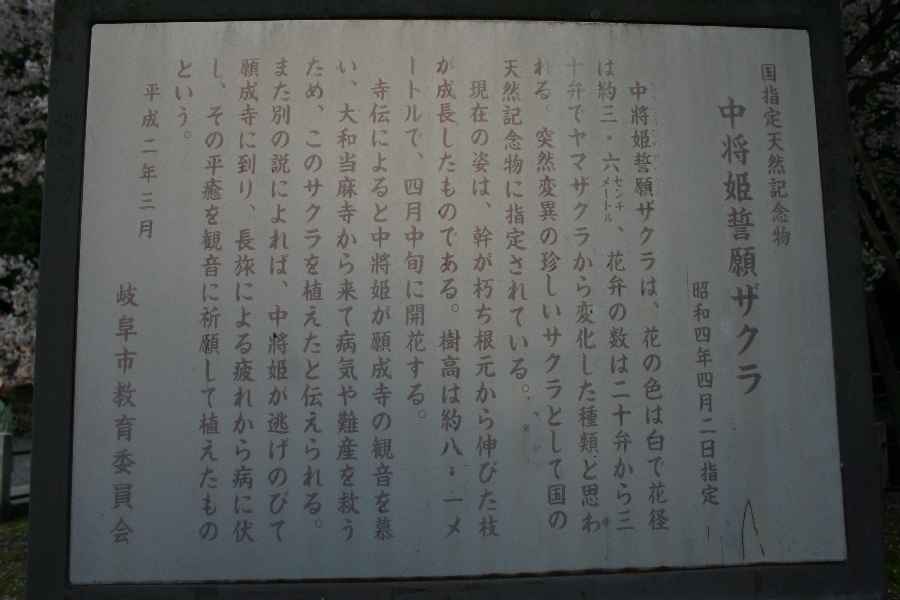 国指定天然記念物
中将姫誓願ザクラ
昭和四年四月二日指定
中将姫誓願ザクラは、花の色は白で花径
は約三・六センチメートル、花弁の数は二十弁から三
十弁でヤマザクラから変化した種類と思わ
れる。突然変異の珍しいサクラとして国の
天然記念物に指定されている。
現在の姿は、幹が朽ち根元から伸びた枝
が成長したものである。樹高は約八・一メ
ートルで、四月中旬に開花する。
寺伝によると中将姫が願成寺の観音を慕
い、大和当麻寺から来て病気や難産を救う
ため、このサクラを植えたと伝えられる。
また別の説によれば、中将姫が逃げのびて
願成寺に到り、長旅による疲れから病に伏
し、その平癒を観音に祈願して植えたもの
という。
平成二年三月
岐阜市教育委員会